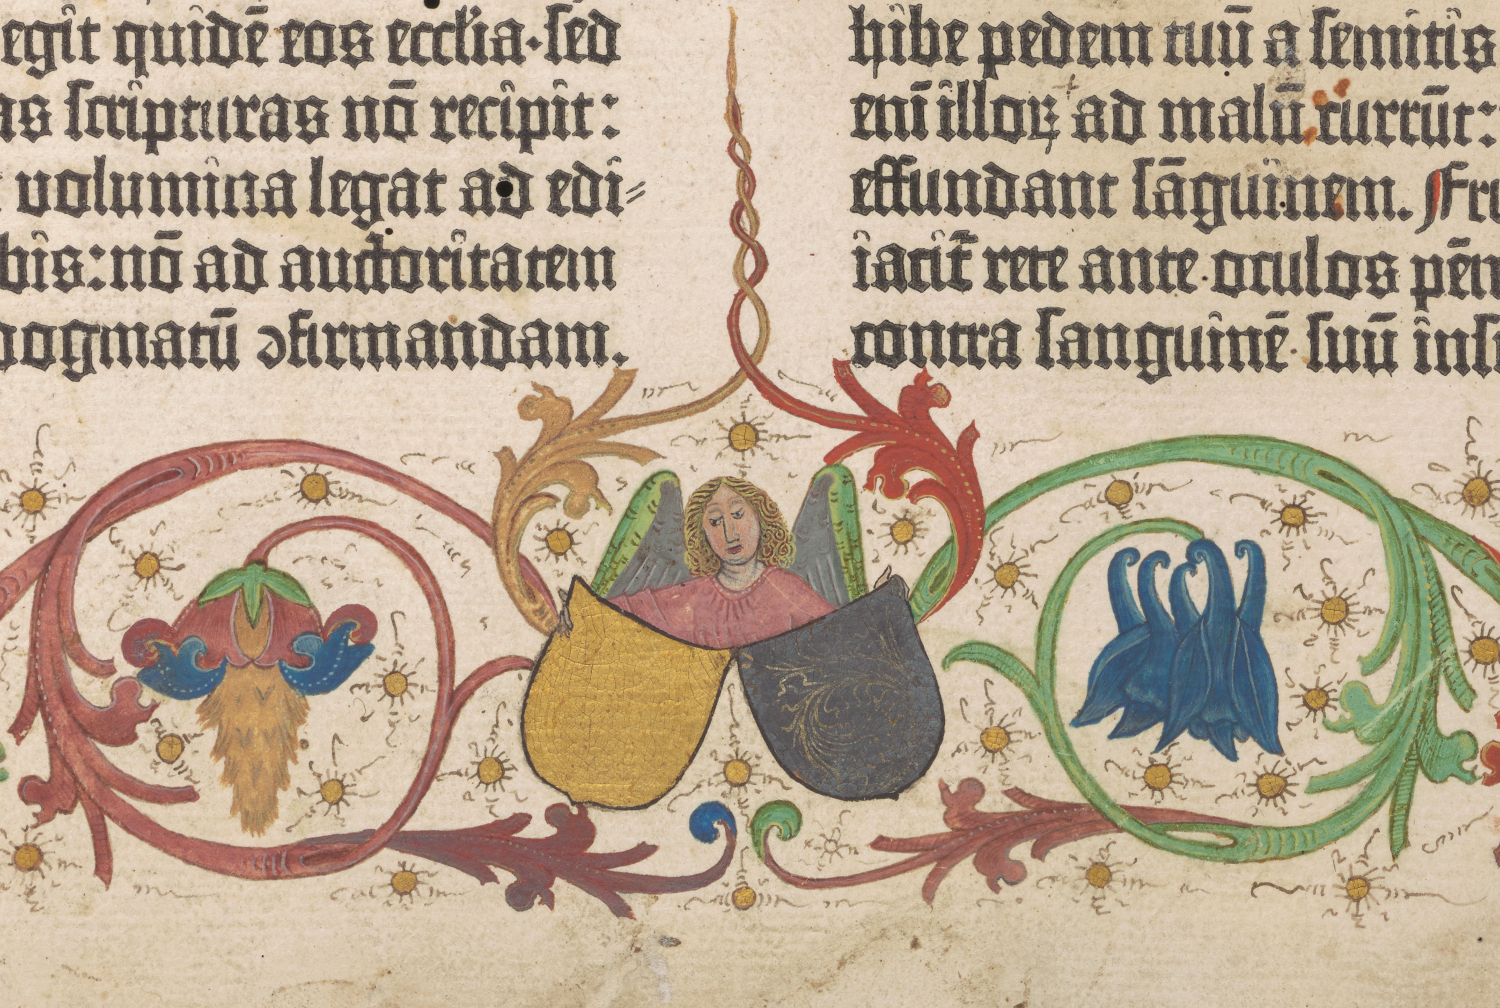 egit quidē eos ecclīa·sed
as scripturas nō recipit:
volumina legat ad edi⸗
bis:nō ad auctoritatem
dogmatū ꝯfirmandam.
hibe pedem tuū a semitis
eni illoꝝ ad malū currūt:
effundant sāguinem. Fru
iacit̄ rete ante oculos pēn
contra sanguinē suū insi